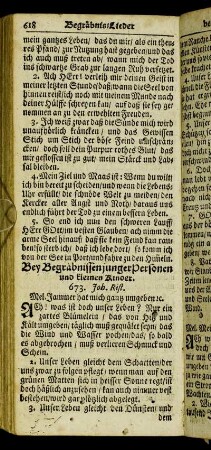 618 Begräbniß-Lieder
mein gantzes Leben, das du mir, als ein theu-
res Pfand, zur Nutzung hast gegeben und das
ich auch muß treten ab, wann mich der Tod
ins schwartze Grab zur langen Ruh versetzet.
2. Ach HErr! verleih mir deinen Geist in
meiner letzten Stunde, daß, wann die Seel von
hinnen reist, ich noch mit meinem Munde nach
deiner Hülffe schreyen kan, auf daß sie
kommen an zu den erwehlten Freuden.
3. Ich weiß zwar daß die Sünde mich wird
unaufhörlich kräncken, und das Gewissen
Stich um Stich der böse Feind
ren; doch soll dein Purpur rothes Blut, das
mir geflossen ist zu gut, mein Stärck und Lab-
sal bleiben.
4. Mein Ziel und Maas ist: Wenn du wilt
ich bin bereit zu scheiden, und wenn die Lebens
Uhr erfüllt die schnöde Welt zu meiden, den
Kercker aller Angst und Noth daraus uns
endlich führt der Tod zu einem bessern Leben.
5. So end ich nun den schweren Lauff!
HErr GOtt, im vesten Glauben; ach nimm die
arme Seel hinauf daß sie kein Feind mög rau-
ben, und daß ich bald, ich lebe so kom ich
von der See in Port, und fahre zu den Himeln.
Bey Begräbnissen junger Personen
und kleinen Kinder.
673. Joh. Rist.
Mel. Jammer hat mich gantz umgeben ꝛc.
ACh: was ist doch unser Leben? Nur ein
zartes Blümelein, das von Hitz und
Kält umgeben, täglich muß gequälet seyn; das
die Wind und Wasser pochen, das, so bald
es abgebrochen, muß verlieren Schmuck und
Schein.
2. Unser Leben gleicht dem Schatten, der
uns zwar zu folgen pflegt, wenn man auf den
grünen Matten sich in heisser Sonne regt, ist
doch häßlich anzusehen, kan auch nimmer vest
bestehen, wird gar plötzlich abgelegt.
3. Unser Leben gleicht den Dünsten, und
dem